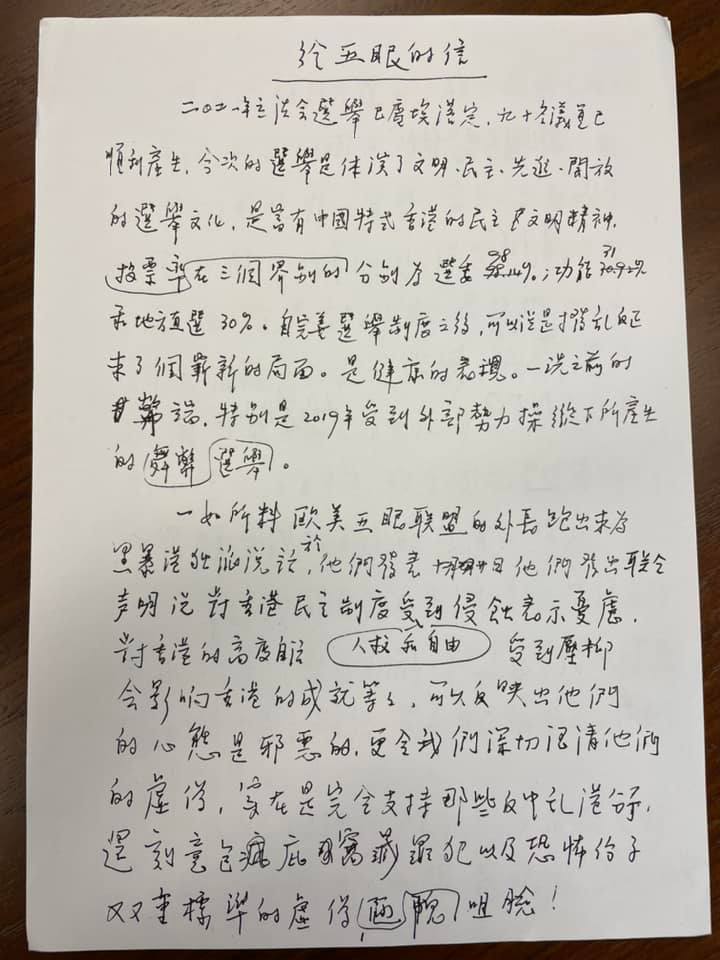 給五眼的信
二〇二一年立法會選舉已塵埃落定，九十名議員已
順利產生，今次的選舉是体現了文明、民主、先進、開放
的選舉文化，是富有中國特式香港的民主文明精神，
投票率在三個界別的分別為選委98.14%。功能31
和地方直選30%。自完善選舉制度之後，可以說是撥亂反正
來了個嶄新的局面。是健康的表現。一洗之前的
弊端，特別是2019年受到外部勢力操縱下所產生
的舞弊選舉。
一如所料歐美五眼联盟的外長跑出來為
黑暴港独派說話，他們發表於 他們發出联合
声明說對香港民主制度受到侵蝕表示憂慮，
對香港的高度自治 人权和自由 受到壓抑
会影响香港的成就等等，可以反映出他們
的心態是邪惡的，更令我們深切认清他們
的虛偽，实在是完全支持那些反中乱港份子，
還刻意包庇窩藏罪犯以及恐怖份子
双重標準的虛偽醜陋咀臉！